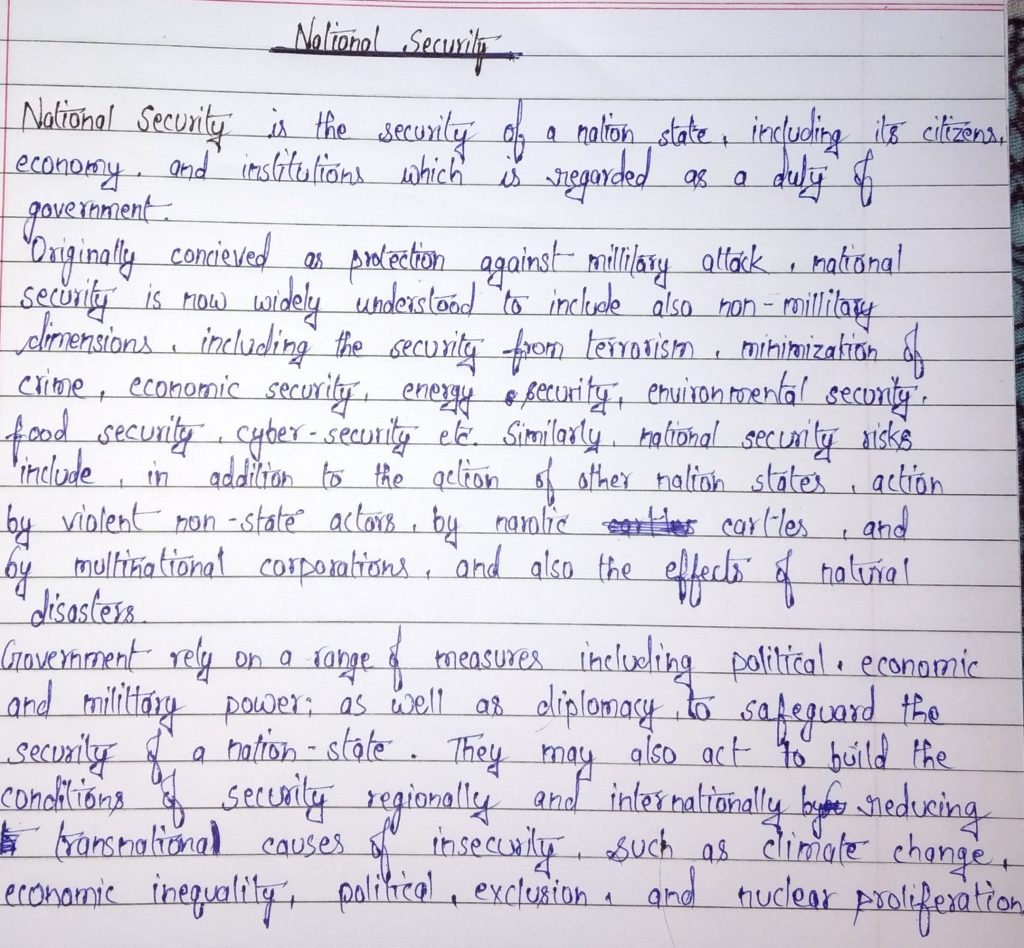 National Security
National Security is the security of a nation state, including its citizens,
economy. and institutions which is regarded as a duty of
government.
Originally concieved as protection against millitary attack, national
security is now widely understood to include also non-millitary
dimensions, including the security from terrorism, minimization of
crime, economic security, energy security, environmental security.
food security, cyber-security etc. Similarly, national security risks
include, in addition to the action of other nation states, action
by violent non-state actors, by narotic cartles, and
by multinational corporations, and also the effects of natural
disasters.
Government rely on a range of measures including political, economic
and milittary power; as well as diplomacy, to safeguard the
security of a nation-state. They may also act to build the
conditions of security regionally and internationally by reducing
transnational causes of insecurity, such as climate change,
economic inequality, political, exclusion, and nuclear proliferation